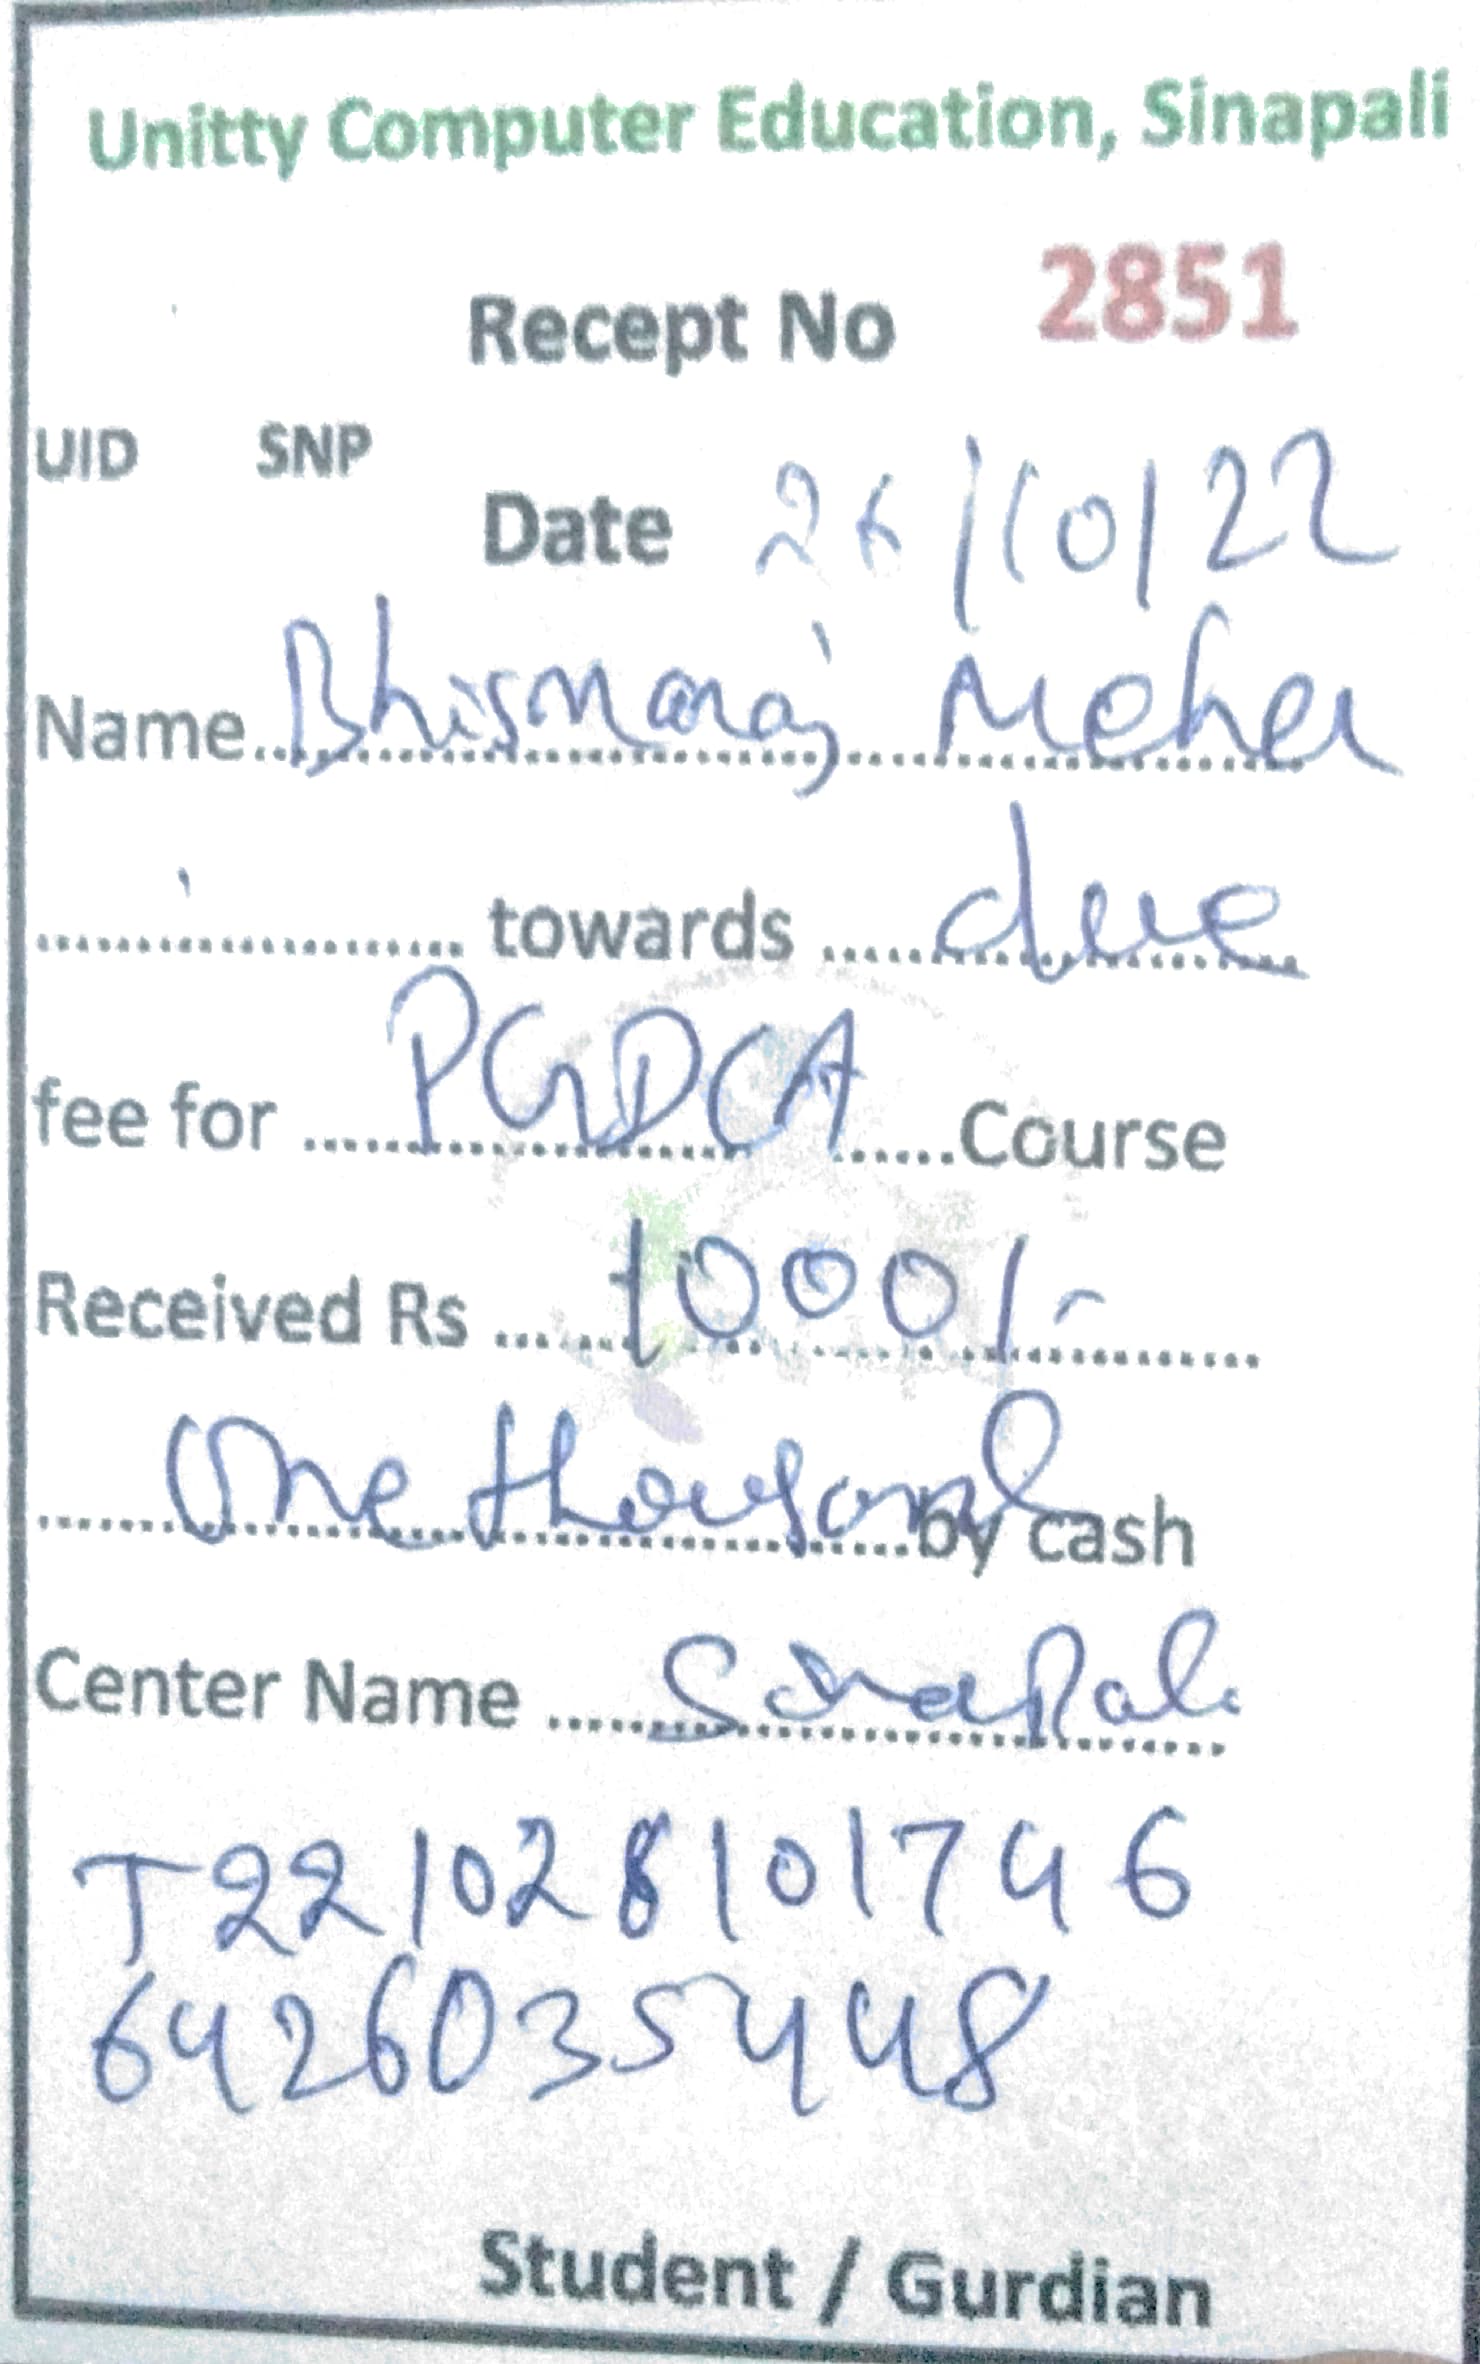 Unitty Computer Education, Sinapali
Recept No 2851
UID SNP
Date 26/10/22
Name Bhismaraj Meher
towards due
fee for PGDCA Course
Received Rs 1000/-
One thousand by cash
Center Name Sinapali
T221028101746
6426035448
Student / Gurdian